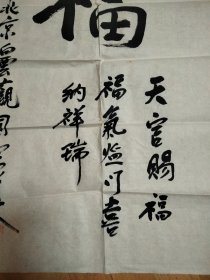 福
天官賜福
福氣盈门喜
納祥瑞
北京白雲觀